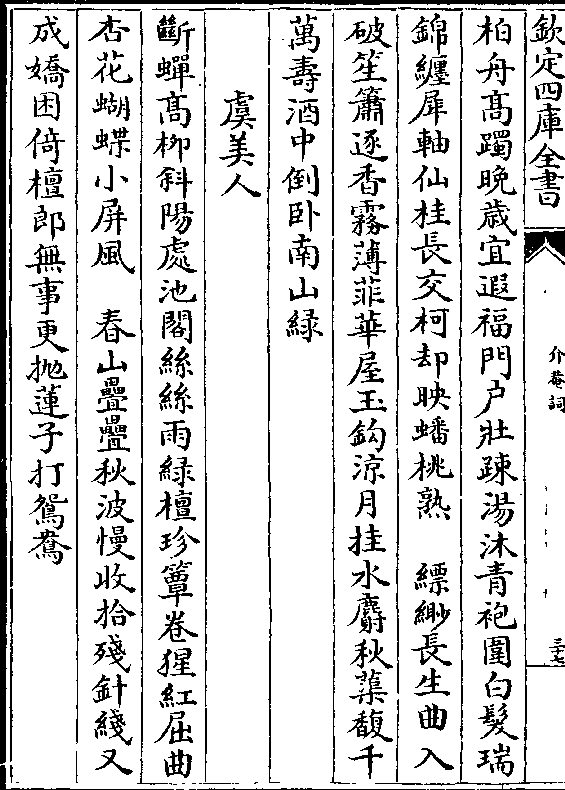 欽定四庫全書
介菴詞
三十七
柏舟髙躅晚歳宜遐福門户壯踈湯沐青袍圍白髮瑞
錦纏犀軸仙桂長交柯却映蟠桃熟　縹緲長生曲入
破笙簫逐香霧薄菲華屋玉鈎涼月挂水麝秋蕖馥千
萬壽酒中倒卧南山緑
虞美人
斷蟬髙栁斜陽處池閣絲絲雨緑檀珍簟卷猩紅屈曲
杏花蝴蝶小屏風　春山疊疊秋波慢收拾殘針綫又
成嬌困倚檀郎無事更抛蓮子打鴛鴦